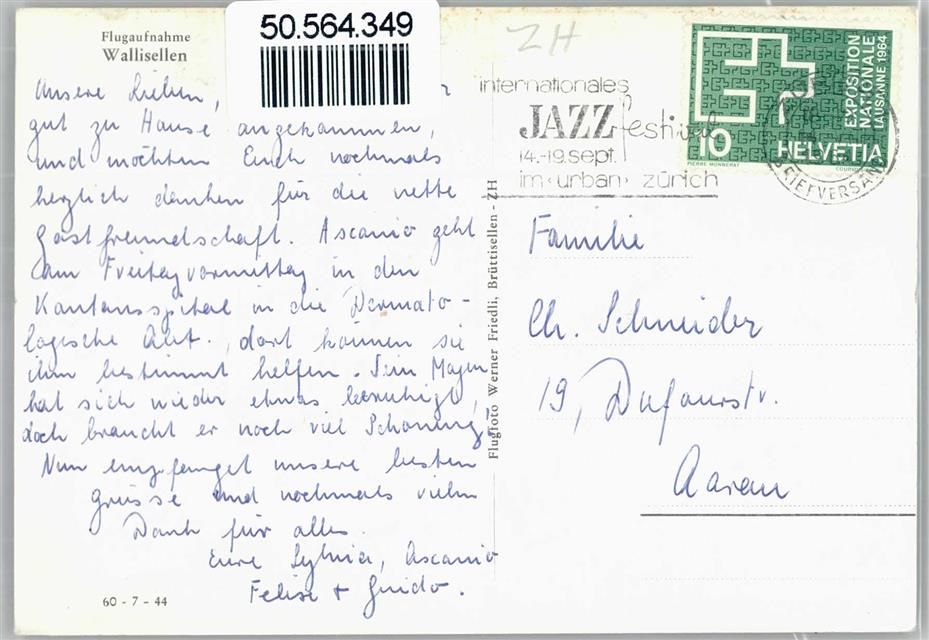 Flugaufnahme
Wallisellen
50.564.349
ZH
Unsere Lieben,
gut zu Hause angekommen,
und möchten Euch nochmals
herzlich danken für die nette
Gastfreundschaft. Ascanio geht
am Freitagvormittag in den
Kantonsspital in die Dermato-
logische Abt., dort können sie
ihm bestimmt helfen. Sein Magen
hat sich wieder etwas beruhigt,
doch braucht er noch viel Schonung!
Nun empfanget unsere besten
Grüsse und nochmals vielen
Dank für alles.
Eure Sylvia, Ascanio
Felix + Guido.
60 - 7 - 44
Flugfoto Werner Friedli, Brüttisellen - ZH
internationales
JAZZ festival
14.-19. sept.
im ‹urban› zürich
BRIEFVERSAND
EXPOSITION
NATIONALE
LAUSANNE 1964
10 HELVETIA
PIERRE MONNERAT
Familie
Ch. Schneider
19, Dufourstr.
Aarau